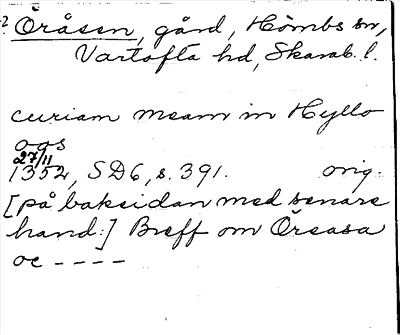 2 Öråsen, gård, Hömbs sn,
Vartofta hd, Skarab. l.
curiam meam in Hyllo
aas
27/11
1352, SD6, s. 391. orig.
[på baksidan med senare
hand:] Breff om Örsasa
oc ----